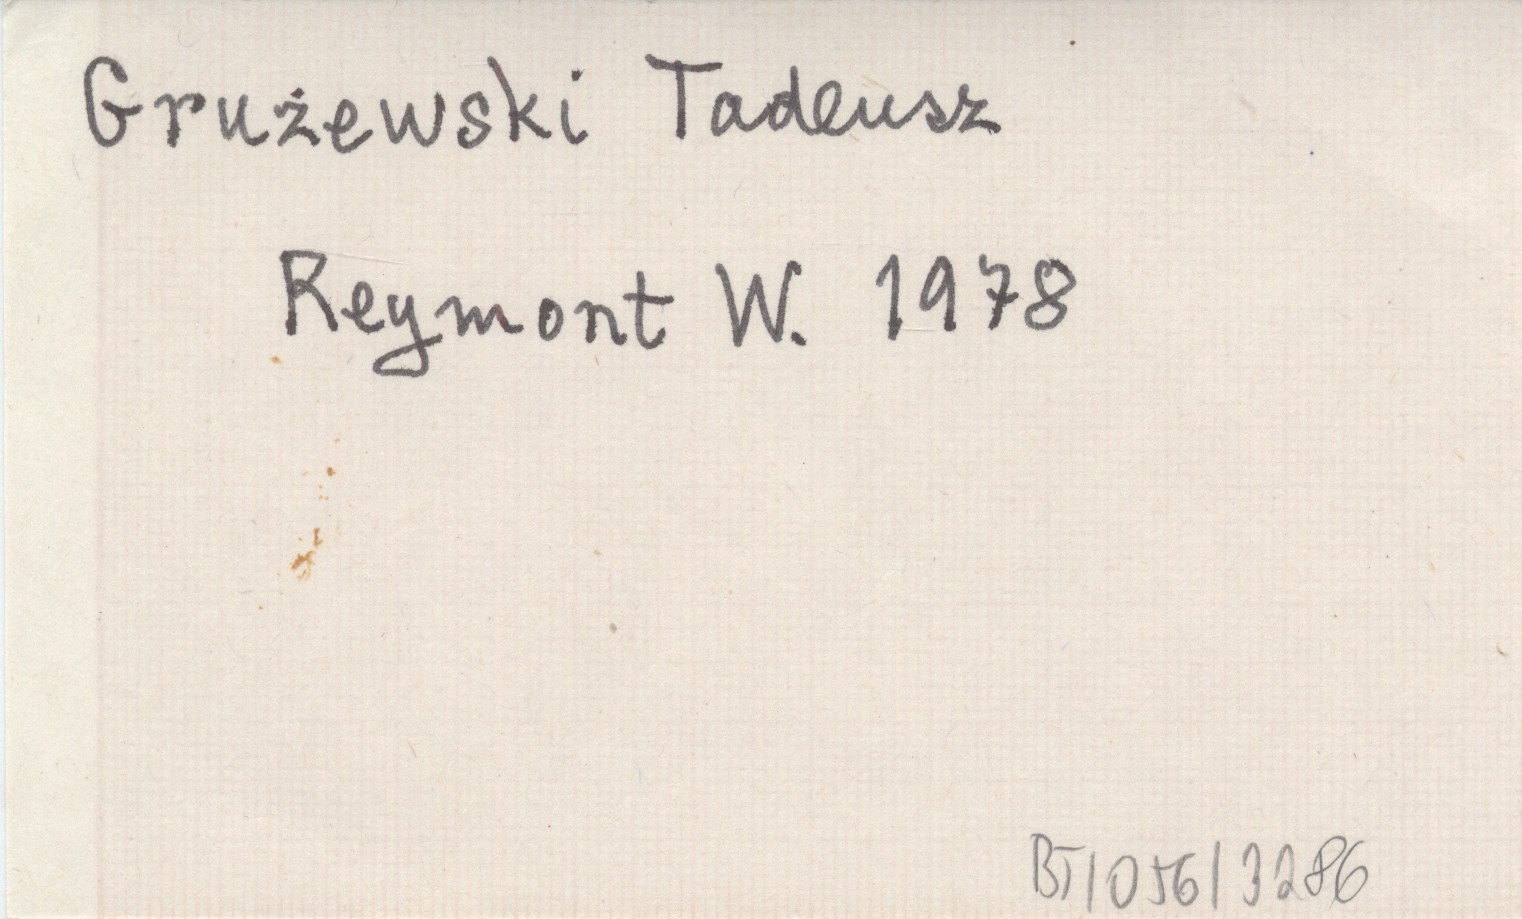 Grużewski Tadeusz
Reymont W. 1978
BT/056/3286